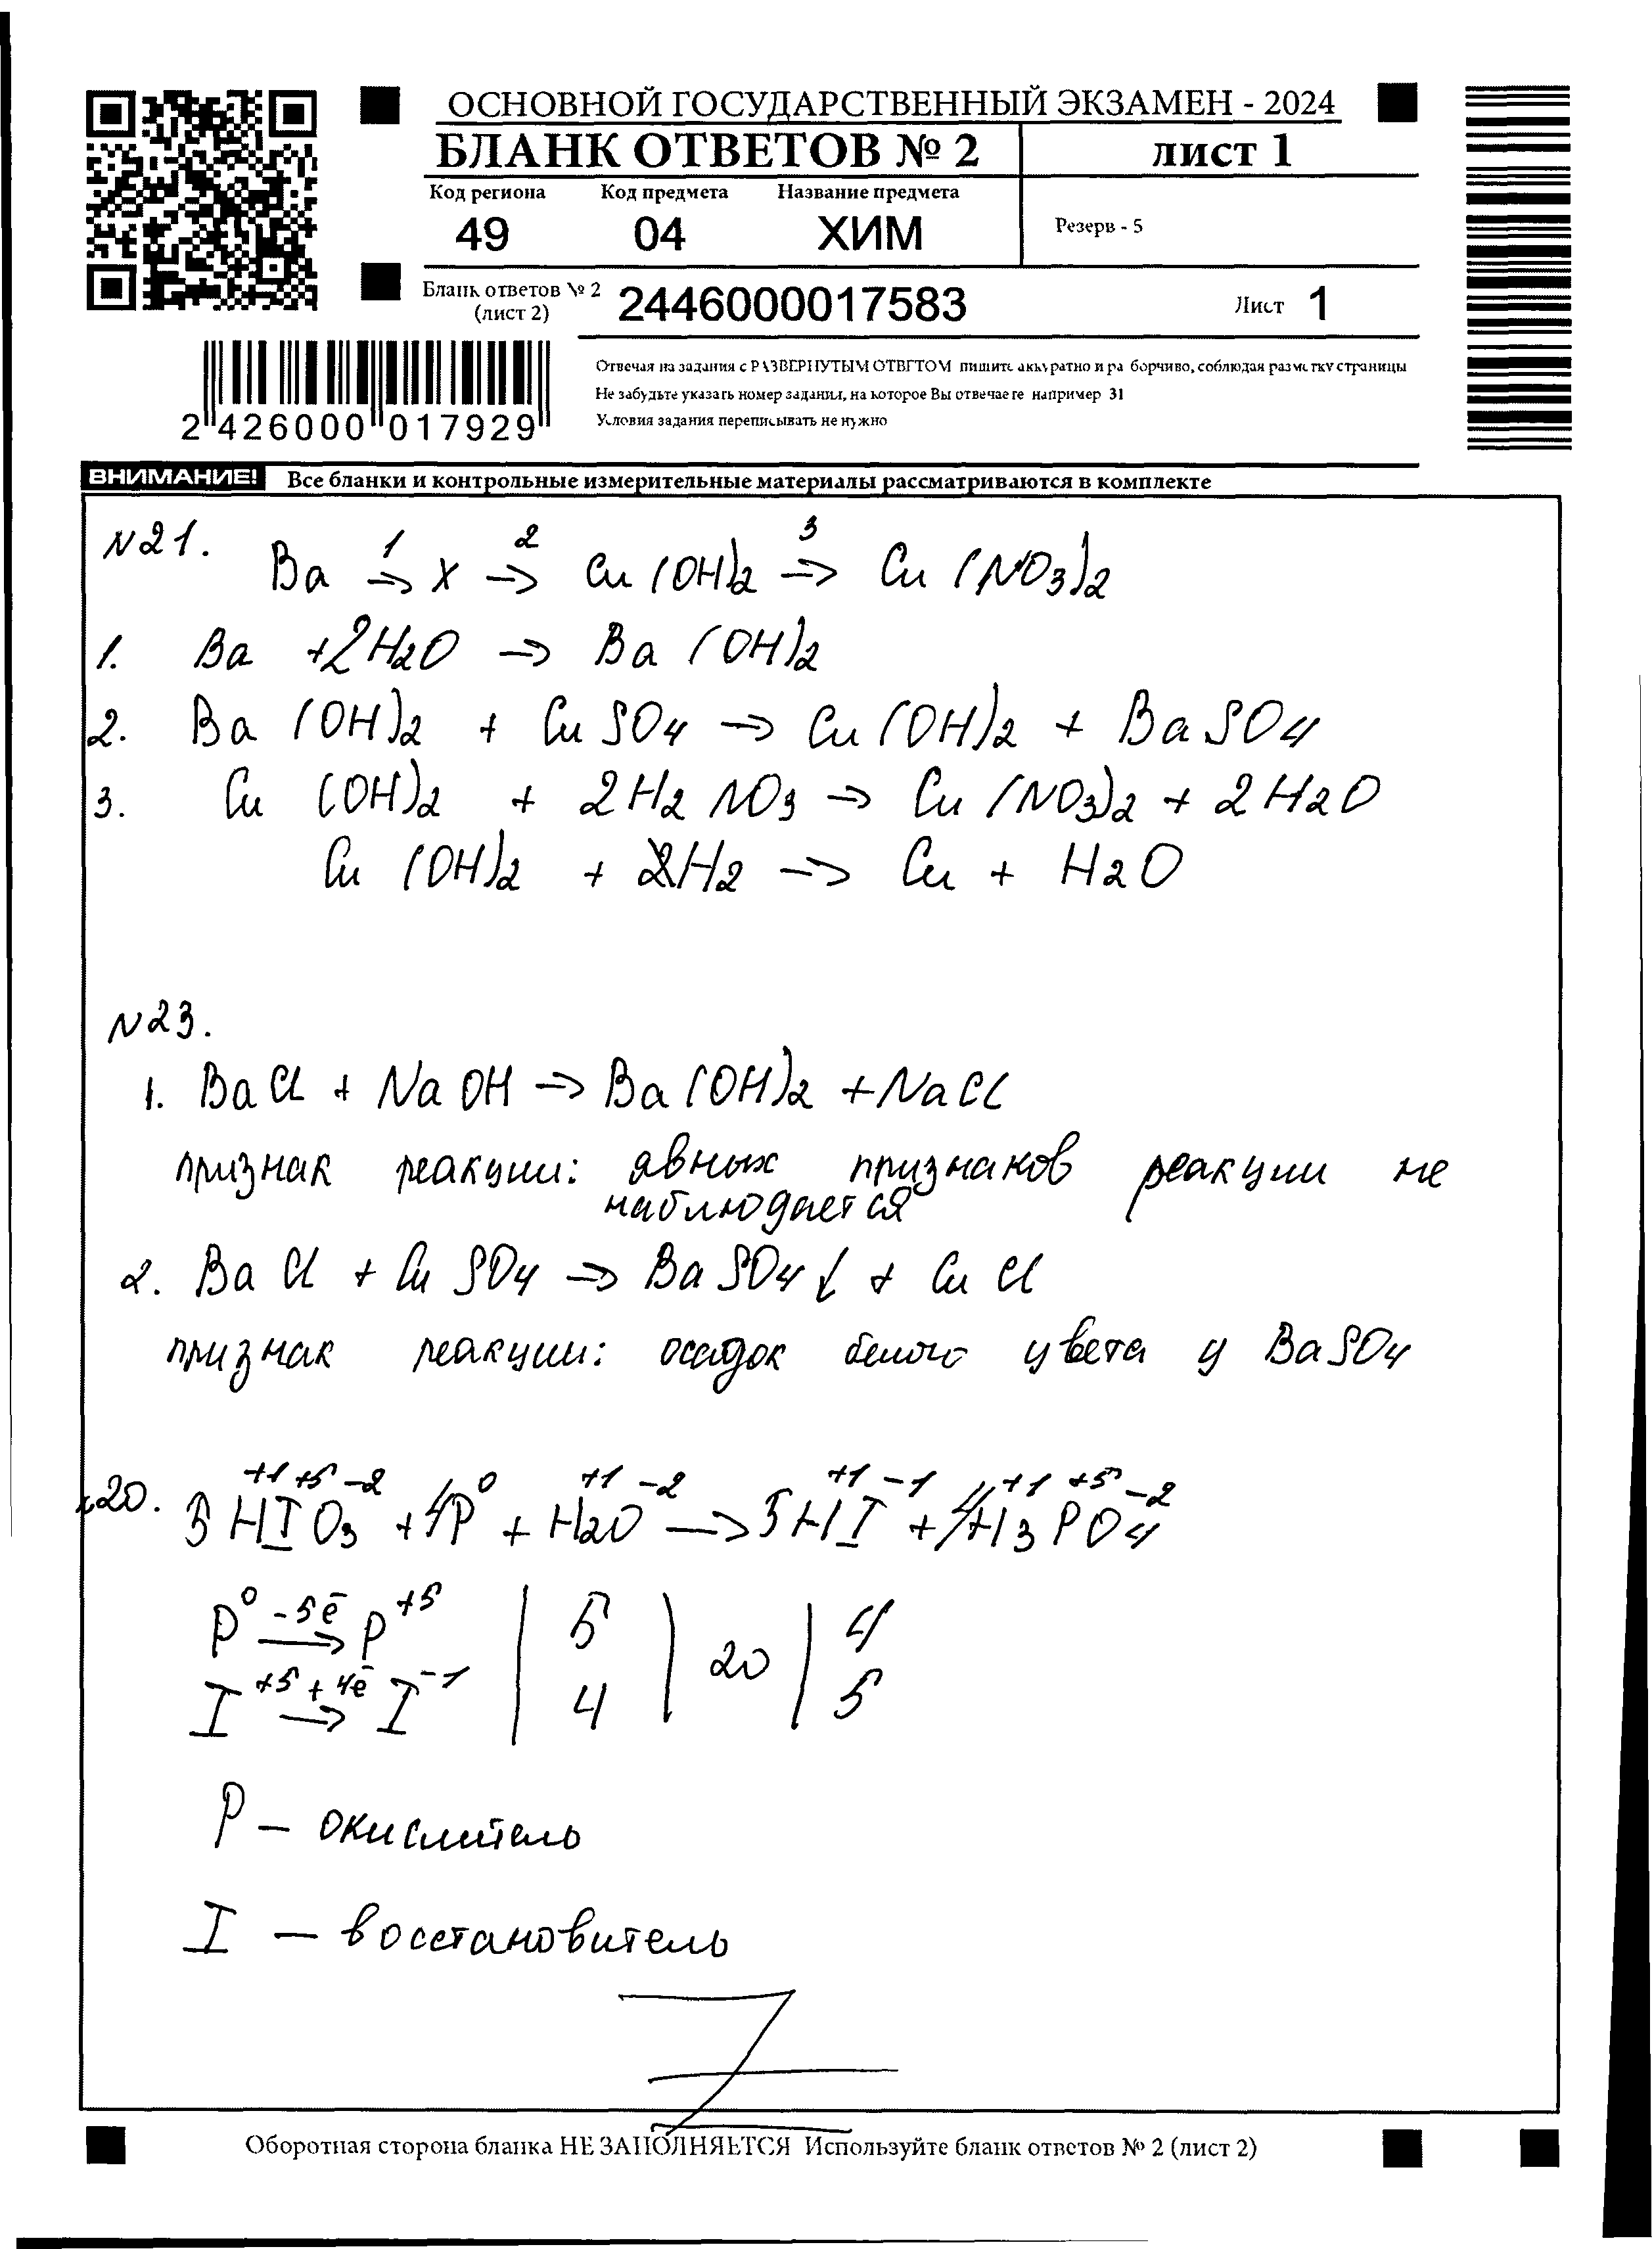 ОСНОВНОЙ ГОСУДАРСТВЕННЫЙ ЭКЗАМЕН - 2024
БЛАНК ОТВЕТОВ № 2 лист 1
Код региона Код предмета Название предмета
49 04 ХИМ Резерв - 5
Бланк ответов № 2 (лист 2) 2446000017583 Лист 1
Отвечая на задания с РАЗВЕРНУТЫМ ОТВЕТОМ пишите аккуратно и разборчиво, соблюдая разметку страницы
Не забудьте указать номер задания, на которое Вы отвечаете например 31
Условия задания переписывать не нужно
2 426000 017929
ВНИМАНИЕ! Все бланки и контрольные измерительные материалы рассматриваются в комплекте
N21. Ba →¹ X →² Cu(OH)2 →³ Cu(NO3)2
1. Ba + 2H2O → Ba(OH)2
2. Ba(OH)2 + CuSO4 → Cu(OH)2 + BaSO4
3. Cu(OH)2 + 2H2NO3 → Cu(NO3)2 + 2H2O
Cu(OH)2 + H2 → Cu + H2O
N23.
1. BaCl + NaOH → Ba(OH)2 + NaCl
признак реакции: явных признаков реакции не
наблюдается
2. BaCl + CuSO4 → BaSO4↓ + CuCl
признак реакции: осадок белого цвета у BaSO4
+1 +5 -2 0 +1 -2 +1 -1 +1 +5 -2
20. 5HIO3 + 4P + H2O → 5HI + 4H3PO4
P⁰ -5ē → P⁺⁵ | 5 | 20 | 4
I⁺⁵ +4ē → I⁻¹ | 4 | | 5
P – окислитель
I – восстановитель
Z
Оборотная сторона бланка НЕ ЗАПОЛНЯЕТСЯ Используйте бланк ответов № 2 (лист 2)